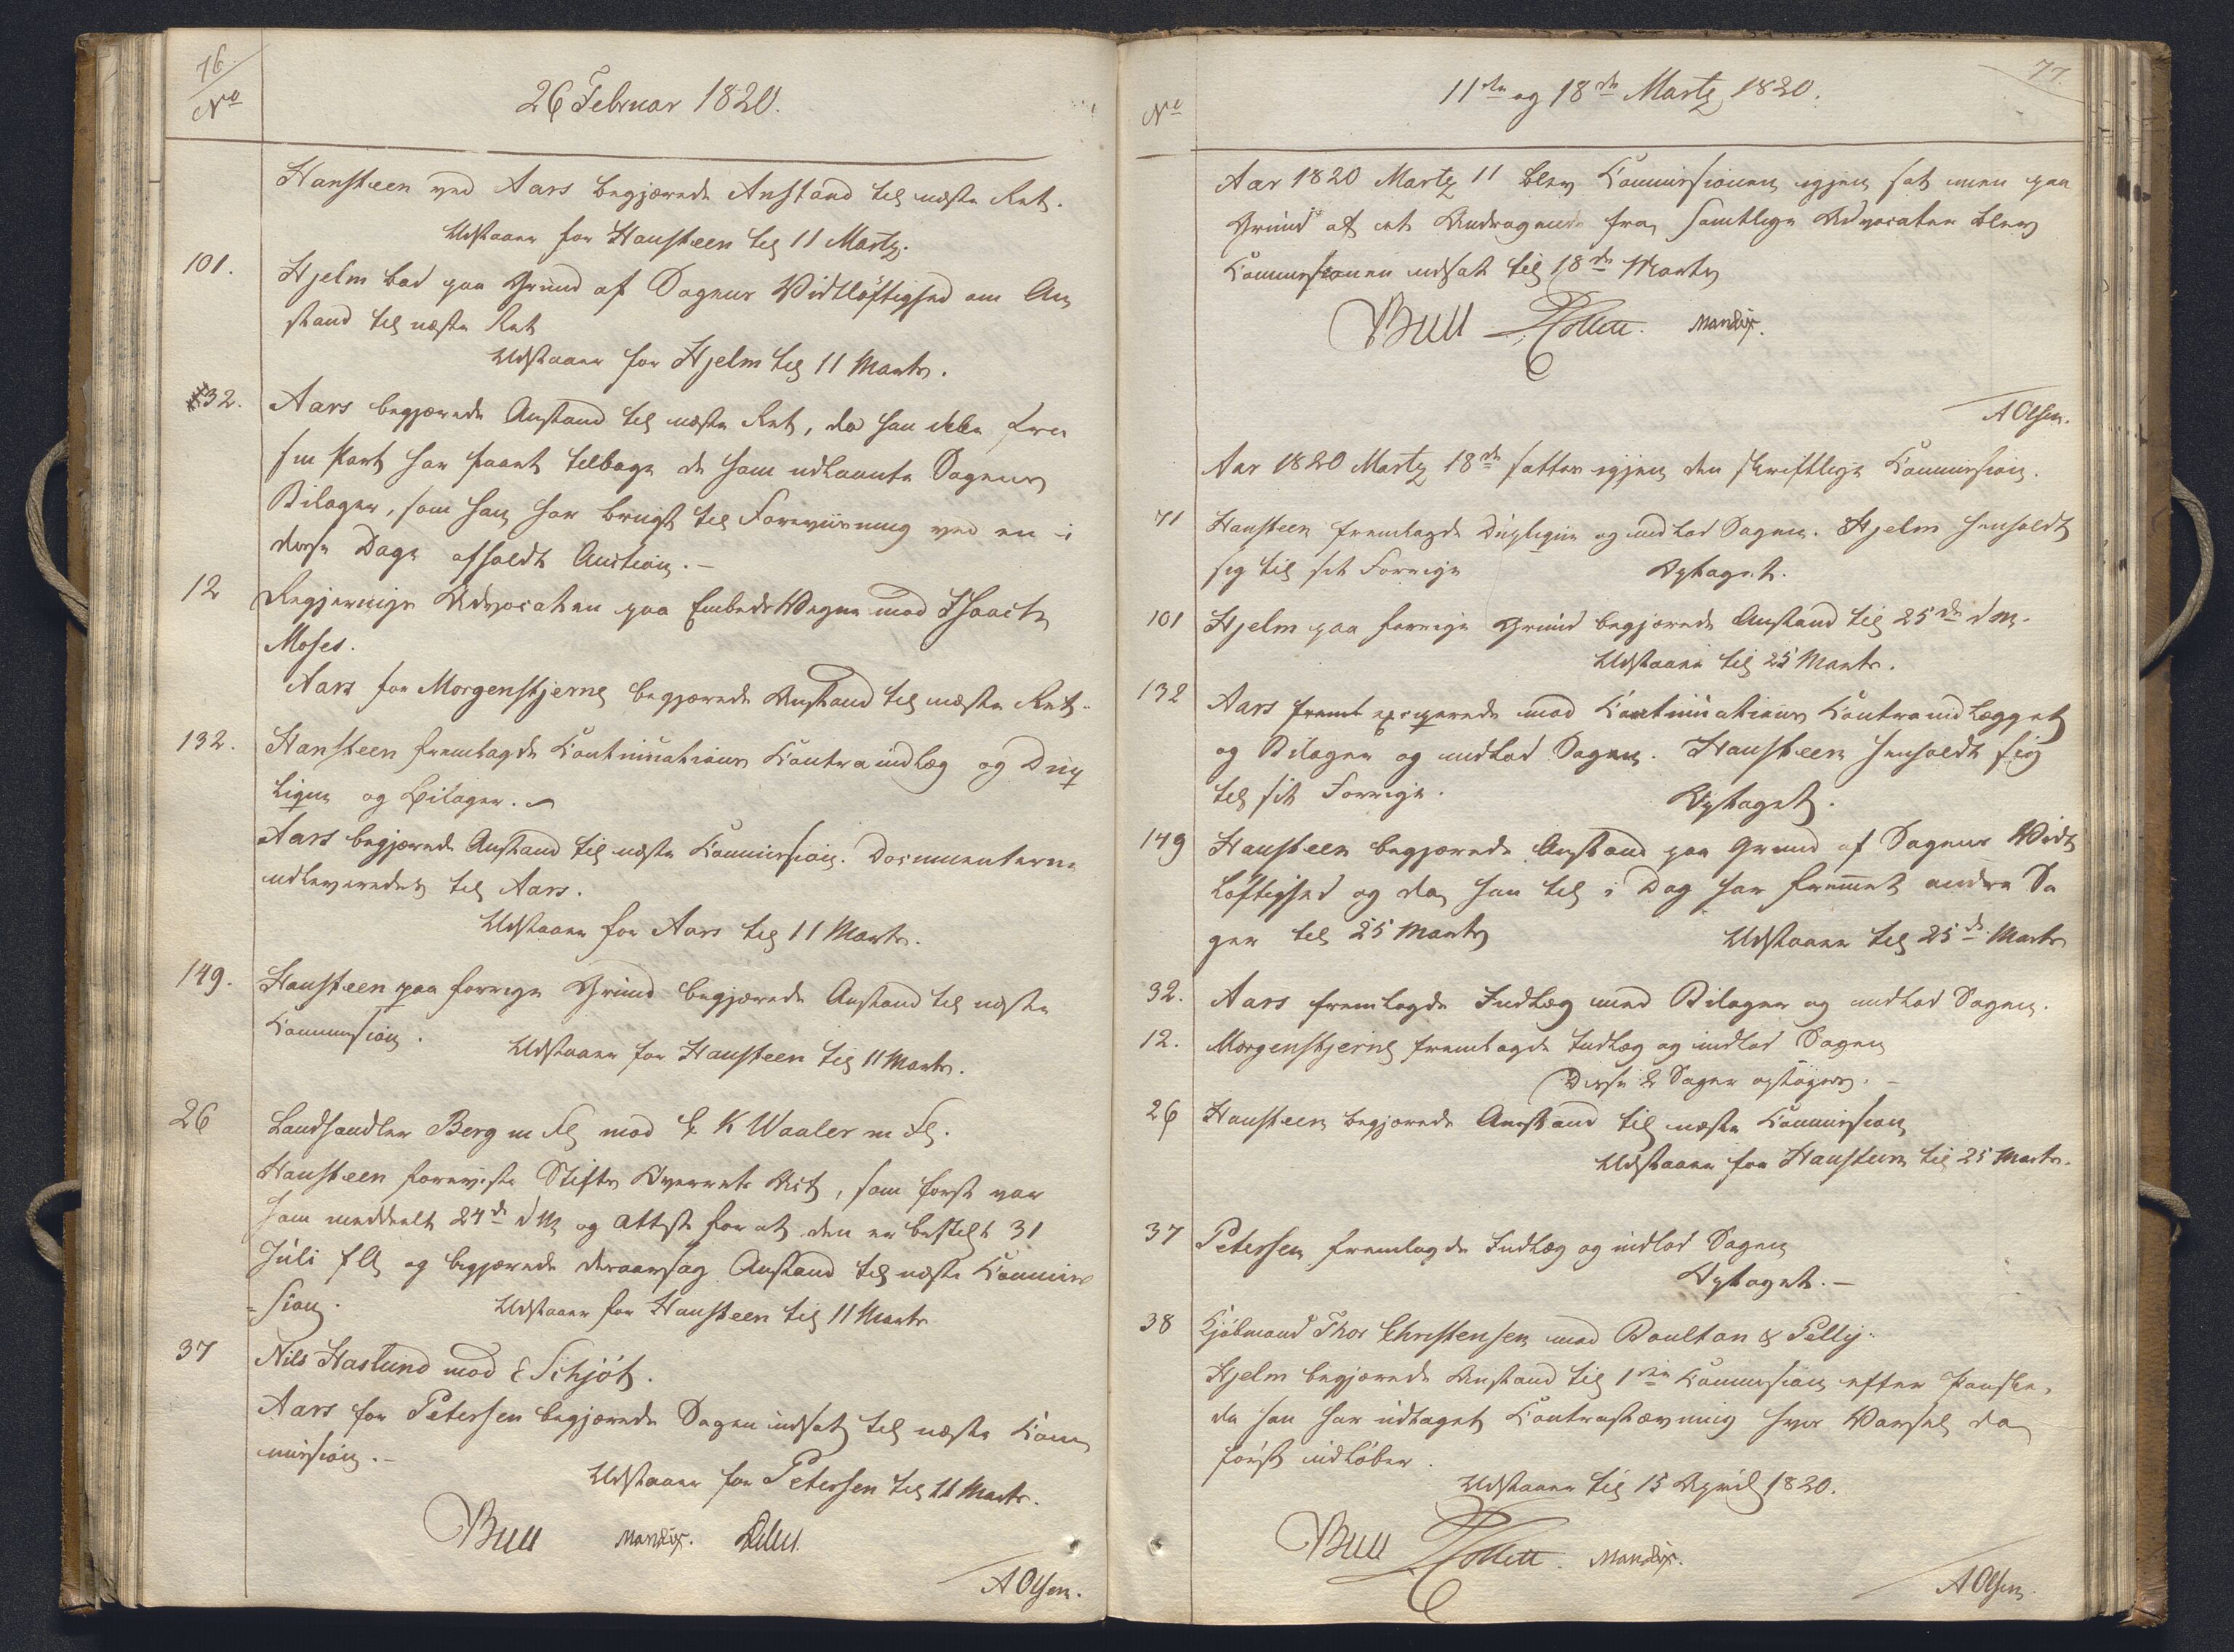 76.
No
26 Februar 1820.
Hansteen ved Aars begjærede Anstand til næste Ret.
Udstaaer for Hansteen til 11 Martz.
101.
Hjelm bad paa Grund af Sagens Vidtløftighed om An
stand til næste Ret
Udstaaer for Hjelm til 11 Marts.
32.
Aars begjærede Anstand til næste Ret, da han ikke fra
sin Part har faaet tilbage de ham udlaante Sagens
Bilager, som han har brugt til Foreviisning ved en i
disse Dage afholdt Auction. –
12
Regjerings Advocaten paa Embeds Vegne mod Isaach
Moses.
Aars for Morgenstjerne begjærede Anstand til næste Ret.
132.
Hansteen fremlagde Continuations Contraindlæg og Dup
liqve og Bilager.
Aars begjærede Anstand til næste Commission. Documenterne
udleveredes til Aars.
Udstaaer for Aars til 11 Marts.
149.
Hansteen paa forrige Grund begjærede Anstand til næste
Commission.
Udstaaer for Hansteen til 11 Marts.
26
Landhandler Berg m Fl mod C. K Waaler m Fl.
Hansteen foreviste Stifts Overrets Act, som først var
ham meddeelt 24de d M og Attest for at den er bestilt 31
Juli f A og begjærede deraarsag Anstand til næste Commis
=sion.
Udstaaer for Hansteen til 11 Marts
37
Nils Haslund mod E Schjøt.
Aars for Petersen begjærede Sagen udsat til næste Com
mission. –
Udstaaer for Petersen til 11 Marts.
Bull Mandix.
A Olsen.
77.
No
11te og 18de Martz 1820.
Aar 1820 Martz 11 blev Commissionen igjen sat men paa
Grund af et Andragende fra samtlige Advocater blev
Commissionen udsat til 18de Marts
Bull Collett. Mandix.
A Olsen.
Aar 1820 Martz 18de sattes igjen den skriftlige Commission.
71
Hansteen fremlagde Dupliqve og indlod Sagen. Hjelm henholdt
sig til sit Forrige
Optaget.
101
Hjelm paa forrige Grund begjærede Anstand til 25de d M.
Udstaaer til 25 Marts.
132
Aars freml exciperede mod Continuations Contraindlægget
og Bilager og indlod Sagen. Hansteen henholdt sig
til sit Forrige.
Optaget.
149
Hansteen begjærede Anstand paa Grund af Sagens Vidt
løftighed og da han til i Dag har fremmet andre Sa
ger til 25 Marts
Udstaaer til 25de Marts
32.
Aars fremlagde Indlæg med Bilager og indlod Sagen.
12.
Morgenstjerne fremlagde Indlæg og indlod Sagen
Disse 2 Sager optages. –
26
Hansteen begjærede Anstand til næste Commission
Udstaaer for Hansteen til 25 Marts.
37
Petersen fremlagde Indlæg og indlod Sagen
Optaget. –
38
Kjøbmand Thor Christensen mod Boulton & Pelly.
Hjelm begjærede Anstand til 1ste Commission efter Paaske,
da han har udtaget Contrastævning hvis Varsel da
først udløber.
Udstaaer til 15 April 1820.
Bull Collett. Mandix.
A Olsen.